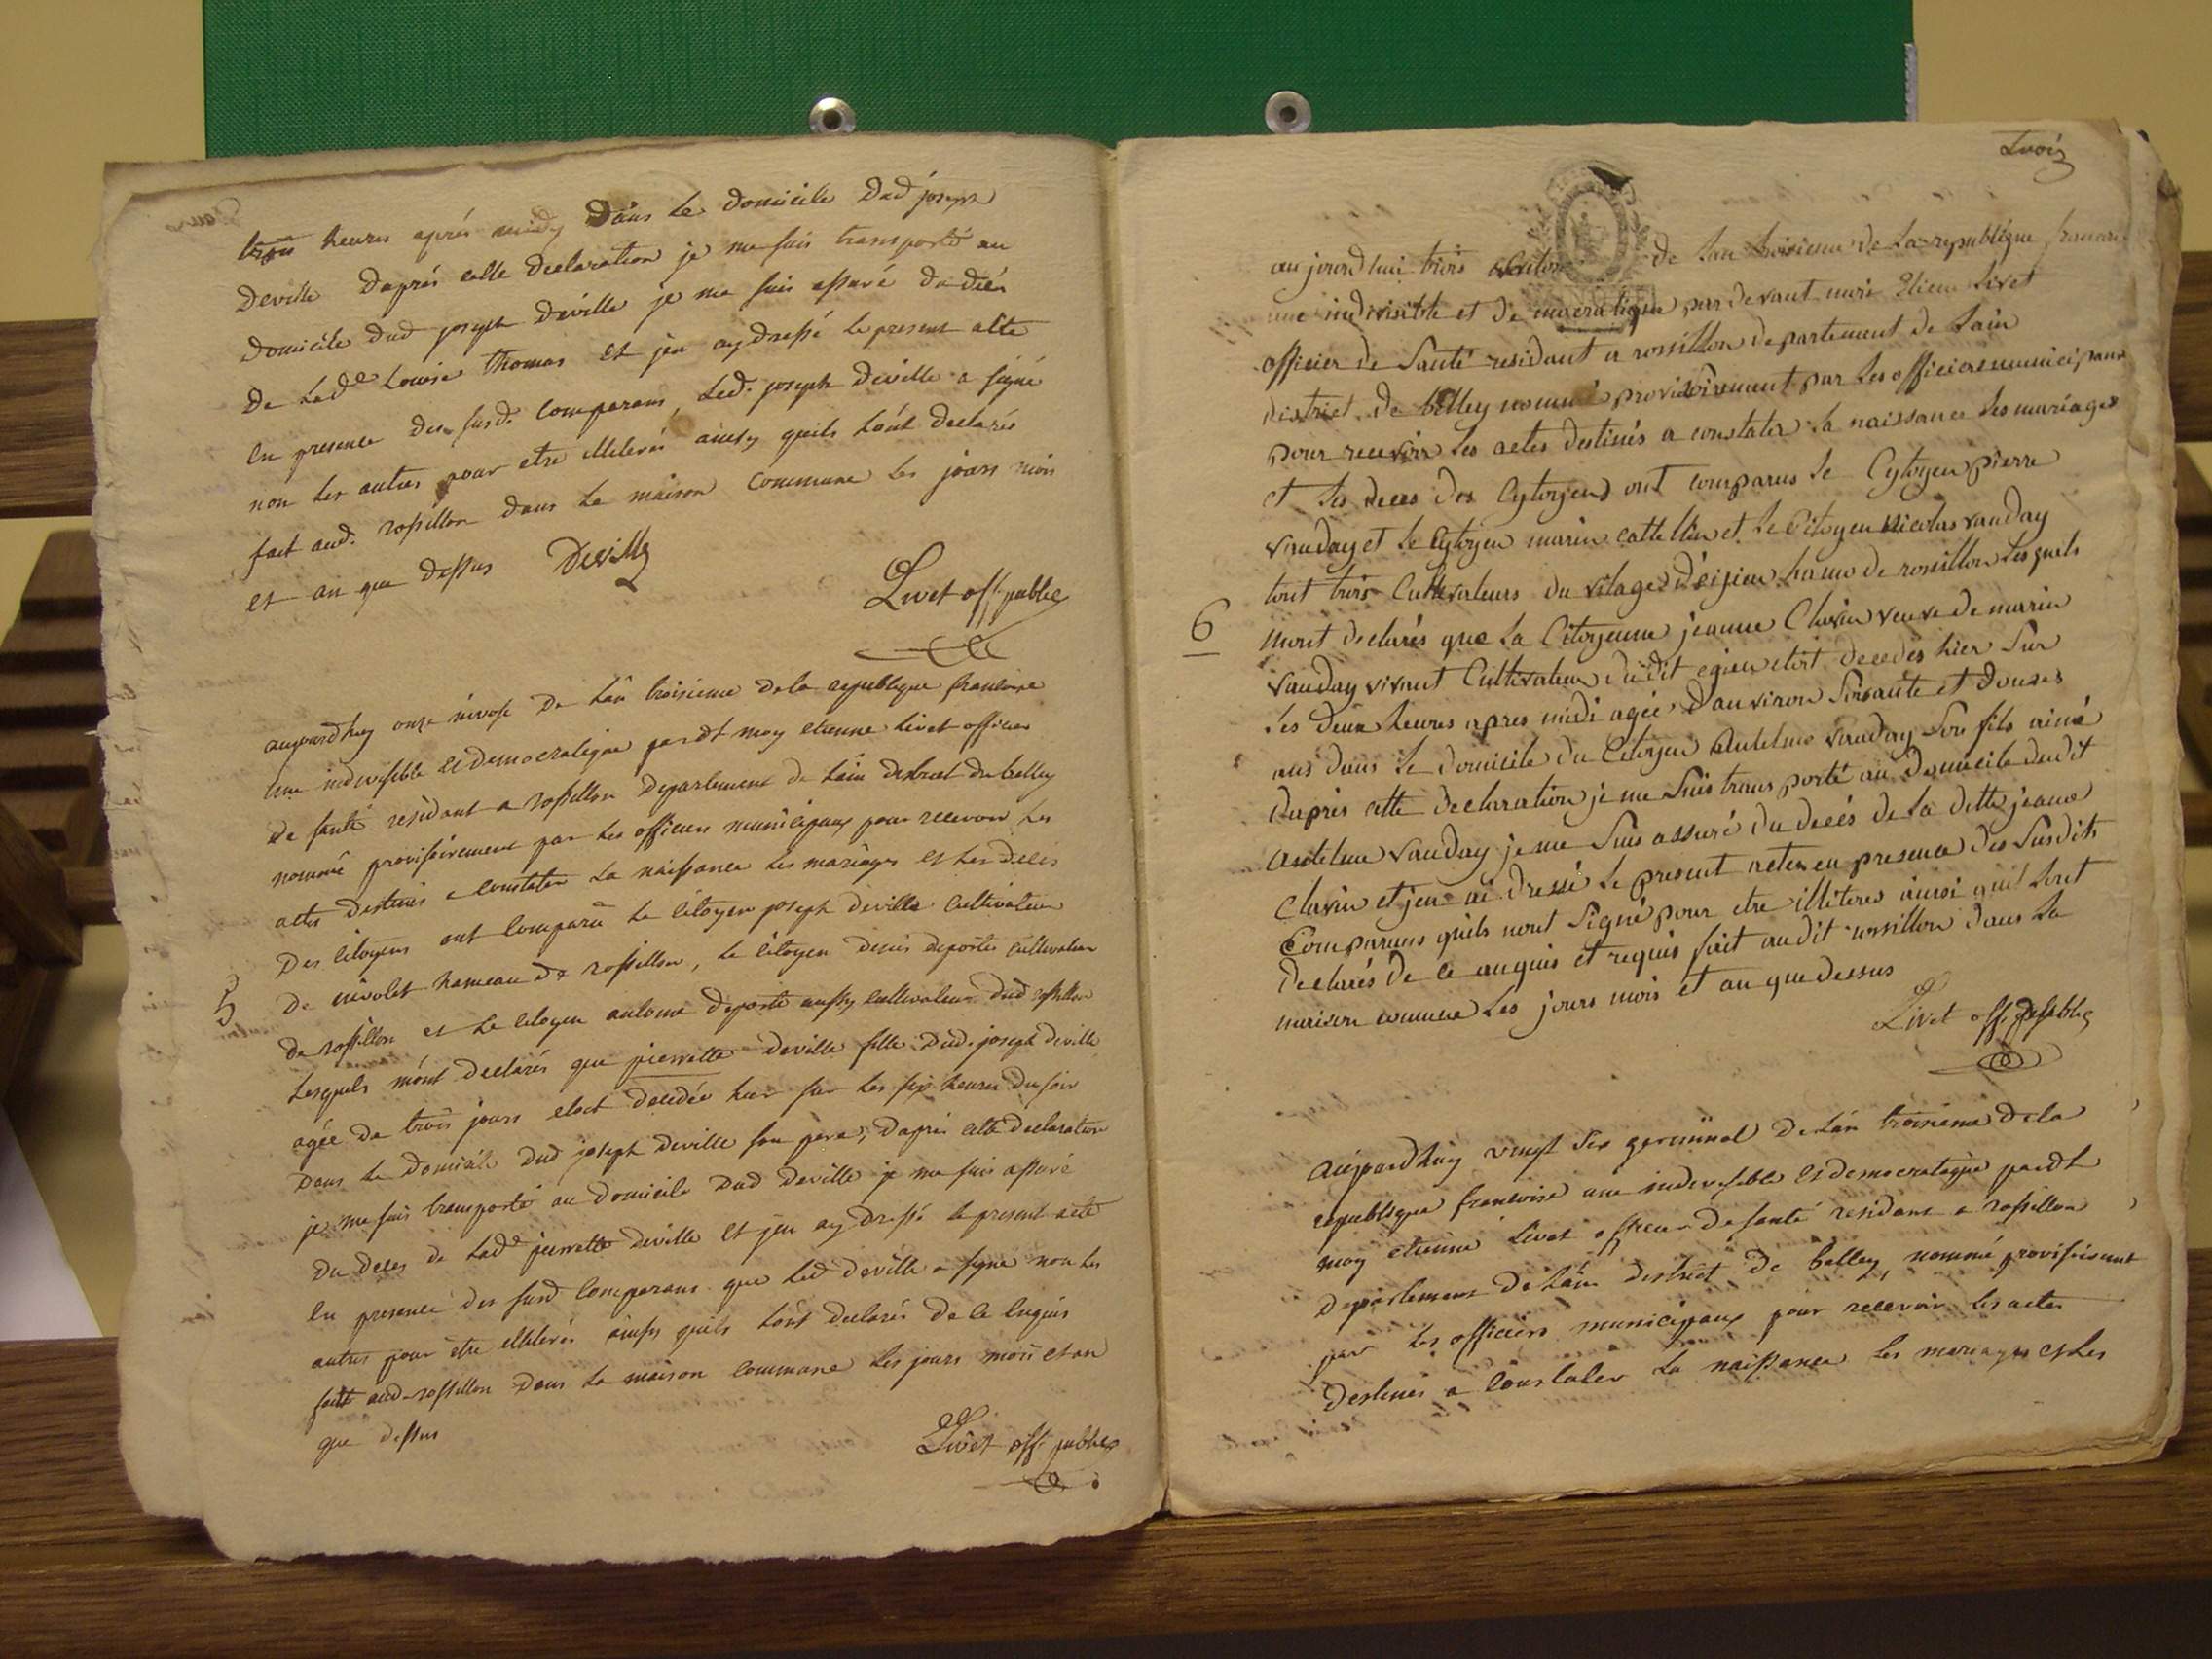 trois heures aprés midy Dans le domicile Dud joseph
Deville Daprés cette declaration je me suis transporté au
Domicile Dud joseph Deville je me suis assuré du décés
De Lade Louise Thomas et jen ay dressé le present acte
En presence des susd. comparans, Led. joseph Deville a signé
non les autres pour etre illeterés ainsy quils lont declarés
fait aud. rossillon dans la maison commune les jours mois
et an que dessus Deville
Livet off. public
aujourdhuy onze nivose De lan troisieme de la republique francoise
une indivisible et democratique pardt moy etienne Livet officier
de santé residant a rossillon departement de Lain district de belley
nommé provisoirement par les officiers municipaux pour recevoir les
actes destinés a constater la naissance les mariages et les decés
Des citoyens ont comparu le citoyen joseph deville cultivateur
5
De hameau de rossillon, le citoyen denis deporte cultivateur
de rossillon et le citoyen antoine deporte aussy cultivateur dud rossillon
Lesquels mont declarés que pierrette deville fille dud. joseph deville
agée de trois jours etoit decedée hier sur les six heures du soir
Dans le domicile dud joseph deville son pere, daprés cette declaration
je me suis transporté au domicile dud deville je me suis assuré
du deces de lade pierrette deville et jen ay dressé le present acte
en presence des susd comparans que led deville a signé non les
autres pour etre illeterés ainsy quils lont declarés de ce enquis
fait aud rossillon dans la maison commune les jours mois et an
que dessus
Livet off. public
trois
aujourdhui trois de lan troisieme de la republique
une indivisible et democratique pardevant moi Livet
officier de Santé residant a rossillon departement de Lain
district de belley nommé provisoirement par les officiers municipaux
pour recevoir les actes destinés a constater la naissance les mariages
et les deces des Cytoyens ont comparus le Cytoyen pierre
vauday et le Cytoyen marin cattellin et le Citoyen nicolas vauday
tout trois Cultivateurs du vilage deijieu hamo de rossillon lesquels
6
mont declarés que la Citoyenne jeanne Clavin veuve de marin
vauday vivant Cultivateur dudit egieu etoit decedés hier sur
les deux heures apres midi agée danviron soixante et douzes
ans dans le domicile du Citoyen antelme vauday son fils ainé
daprés cette declaration je me suis trans porté au domicile dudit
antelme vauday je me suis assuré du decés de la ditte jeanne
Clavin et jen ai dressé le present acte en presence des susdits
Comparans quils nont signé pour etre illiteres ainsi quil lont
declarés de ce anquis et requis fait audit rossillon dans la
maison comune les jours mois et an que dessus
Livet off. public
aujourdhuy vingt six germinal de lan troisieme de la
republique francoise une indivisible et democratique pardt
moy etienne Livet officier de santé residant a rossillon
departement de Lain district de belley, nommé provisoirement
par les officiers municipaux pour recevoir les actes
destinés a constater la naissance les mariages et les